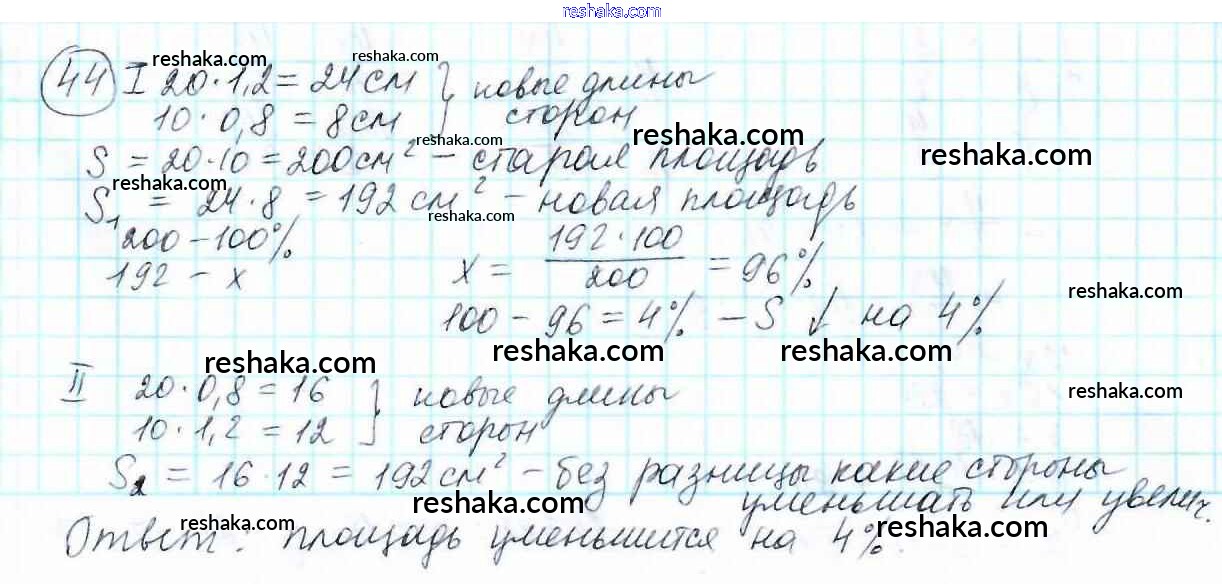 reshaka.com
reshaka.com reshaka.com
44 I 20·1,2 = 24 см } новые длины
10·0,8 = 8 см сторон
reshaka.com reshaka.com reshaka.com
S = 20·10 = 200 см² – старая площадь
reshaka.com
S₁ = 24·8 = 192 см² – новая площадь
reshaka.com
200 – 100%
192 – x x = 192·100 / 200 = 96%
reshaka.com
100 – 96 = 4% – S ↓ на 4%
reshaka.com reshaka.com reshaka.com
II 20·0,8 = 16 } новые длины
reshaka.com
10·1,2 = 12 сторон
S₂ = 16·12 = 192 см² – без разницы какие стороны
reshaka.com уменьшать или увелич.
reshaka.com reshaka.com
Ответ: площадь уменьшится на 4%.